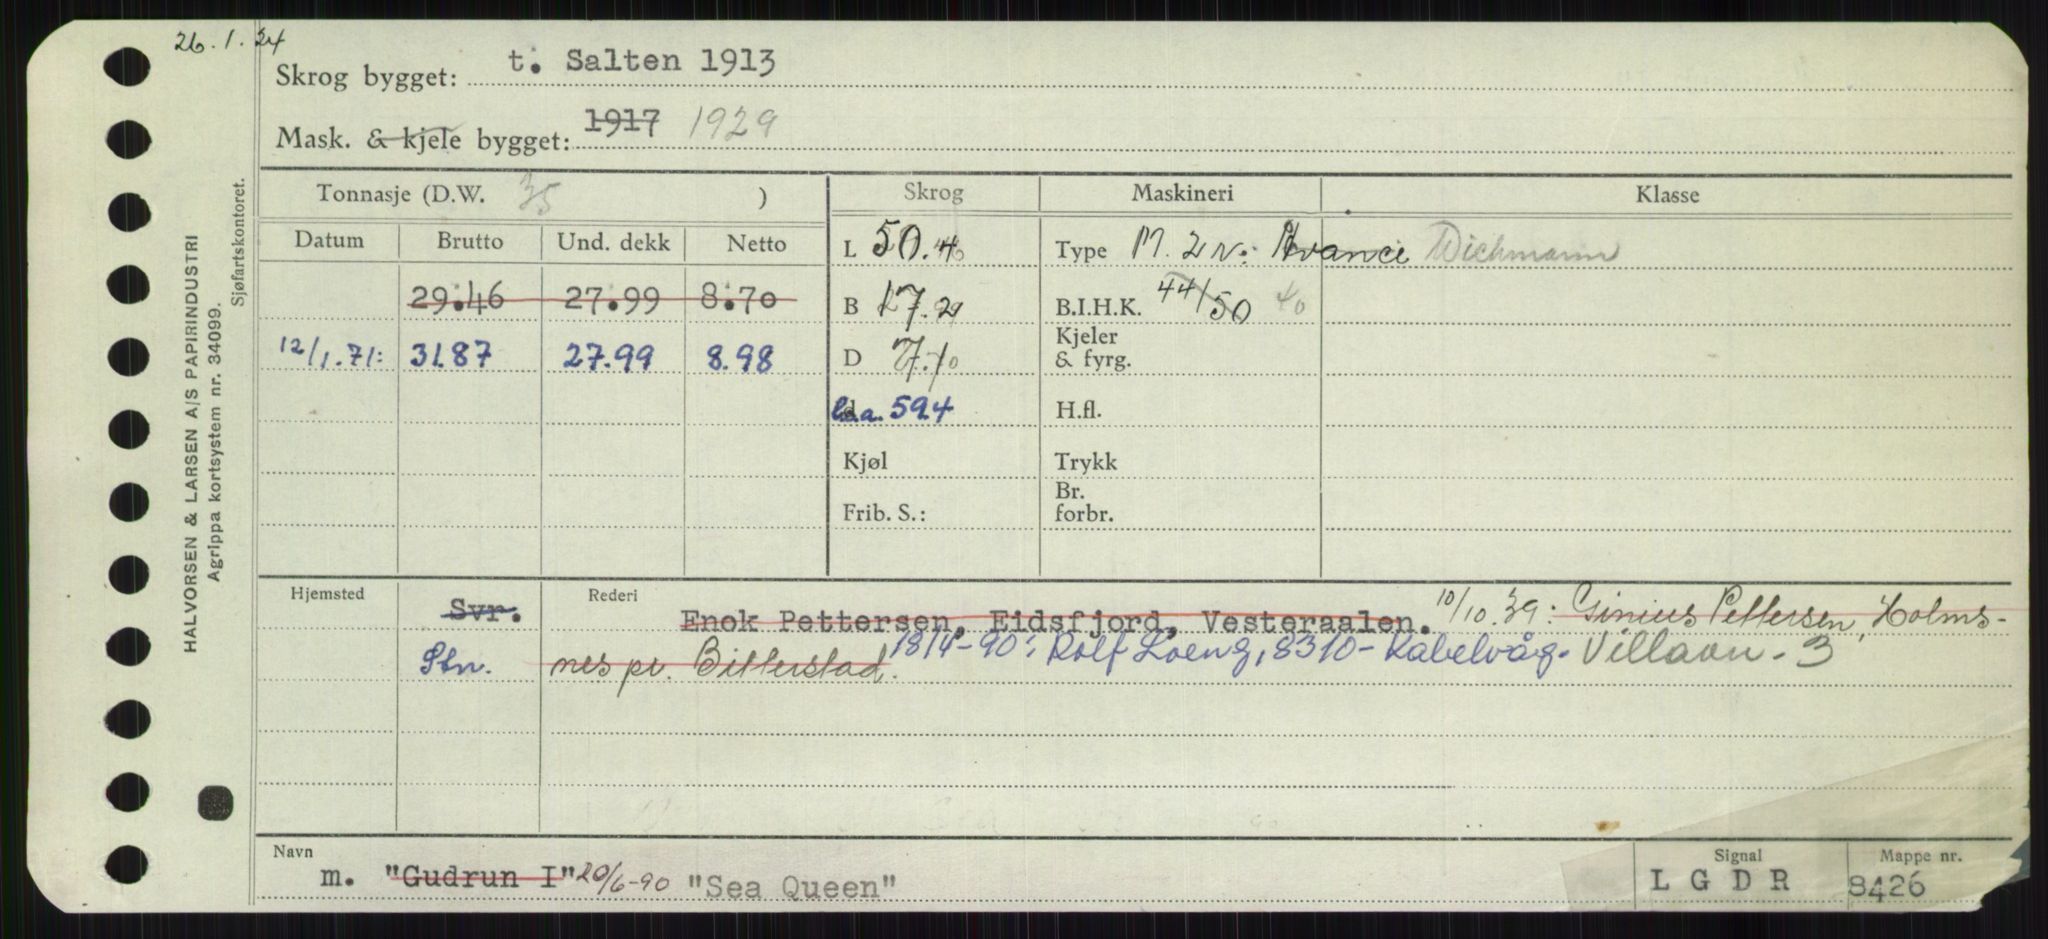 26.1.34
Skrog bygget: t. Salten 1913
Mask. & kjele bygget: 1917 1929
Tonnasje (D.W. 35 ) Skrog Maskineri Klasse
Datum Brutto Und. dekk Netto L 50.4 Type M. 2 Avance Wichmann
29.46 27.99 8.70 B 17.2 B.I.H.K. 44/50 40
12/1.71: 31.87 27.99 8.98 D 7.10 Kjeler & fyrg.
l.a. 59.4 H.fl.
Kjøl Trykk
Frib. S.: Br. forbr.
Hjemsted Svr. Rederi Enok Pettersen, Eidsfjord, Vesteraalen. 10/10.39: Ginius Pettersen, Holms-
Stn. nes pr. Bitterstad. 18/4-90: Rolf Loeng, 8310-Kabelvåg.
Navn Signal Mappe nr.
m. "Gudrun I" 20/6-90 "Sea Queen" LGDR 8426
HALVORSEN & LARSEN A/S PAPIRINDUSTRI
Agrippa kortsystem nr. 34099.
Sjøfartskontoret.